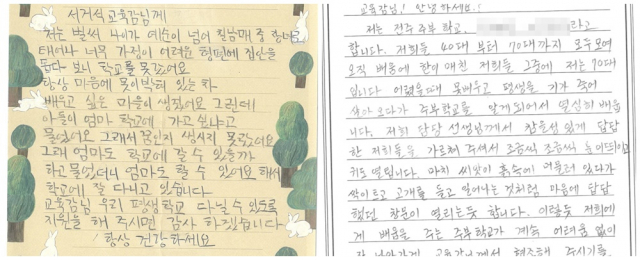 서거석 교육감님께
저는 벌써 나이가 예순이 넘어 칠남매 중 장녀로
태어나 너무 가정이 어려운 형편에 집안을
돕다 보니 학교를 못갔어요
항상 마음에 못이박혀 있는 차
배우고 싶은 마음이 생겼어요 그런데
아들이 엄마 학교에 가고 싶냐고
물었어요 그래서 꿈인지 생시지 몰랐어요
그래 엄마도 학교에 갈 수 있을까
하고 물었더니 엄마도 할 수 있어요 해서
학교에 잘 다니고 있습니다
교육감님 우리 평생학교 다닐 수 있도록
지원을 해 주시면 감사 하겠습니다
항상 건강하세요
교육감님! 안녕하세요!
저는 전주 주부 학교, 라고
합니다. 저희들 40대 부터 70대까지 모두모여
오직 배움에 한이 애친 저희들 그중에 저는 70대
입니다 어렸을때 못배우고 평생을 기가 죽어
살아 오다가 주부학교를 알게되어서 열심히 배웁
니다. 저희 담당 선생님께서 참을성 있게 답답
한 저희들을 가르쳐 주셔서 조금씩 조금씩 눈이뜨이고
귀도 열립니다. 마치 씨앗이 흙속에 머물러 있다가
싹이트고 고개를 들고 일어나는 것처럼 마음에 답답
했던 창문이 열리는듯 합니다. 이렇듯 저희에
게 배움을 주는 주부학교가 계속 어려움 없이
잘 나아가게 교육감님께서 협조해 주시기를